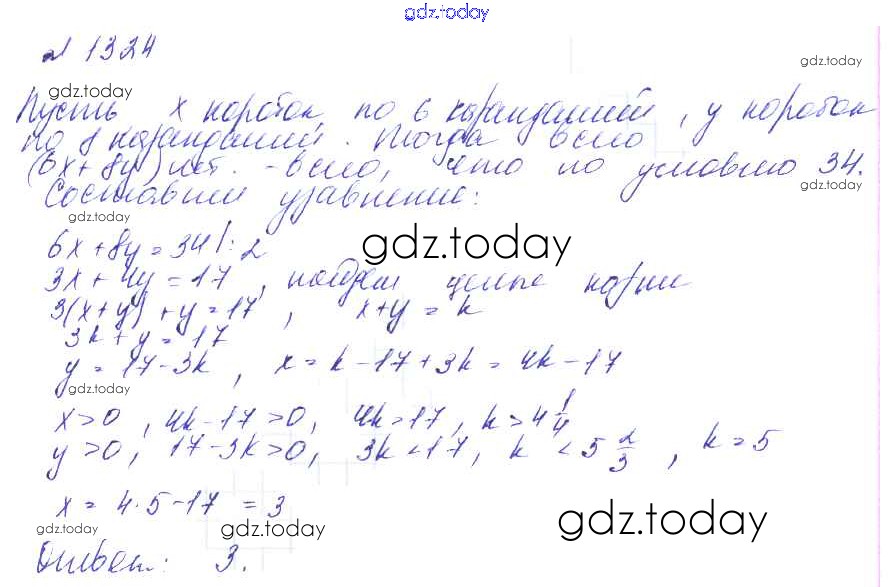 gdz.today
№ 1324
gdz.today
gdz.today
Пусть x коробок по 6 карандашей, у коробок
по 8 карандашей. Тогда всего
(6x + 8y) кар. - всего, что по условию 34.
gdz.today
Составим уравнение:
gdz.today
6x + 8y = 34 | : 2
gdz.today
3x + 4y = 17, найдем целые корни
3(x + y) + y = 17, x + y = k
3k + y = 17
y = 17 - 3k, x = k - 17 + 3k = 4k - 17
gdz.today
x > 0, 4k - 17 > 0, 4k > 17, k > 4 1/4
y > 0, 17 - 3k > 0, 3k < 17, k < 5 2/3, k = 5
x = 4 · 5 - 17 = 3
gdz.today
gdz.today
gdz.today
Ответ: 3.